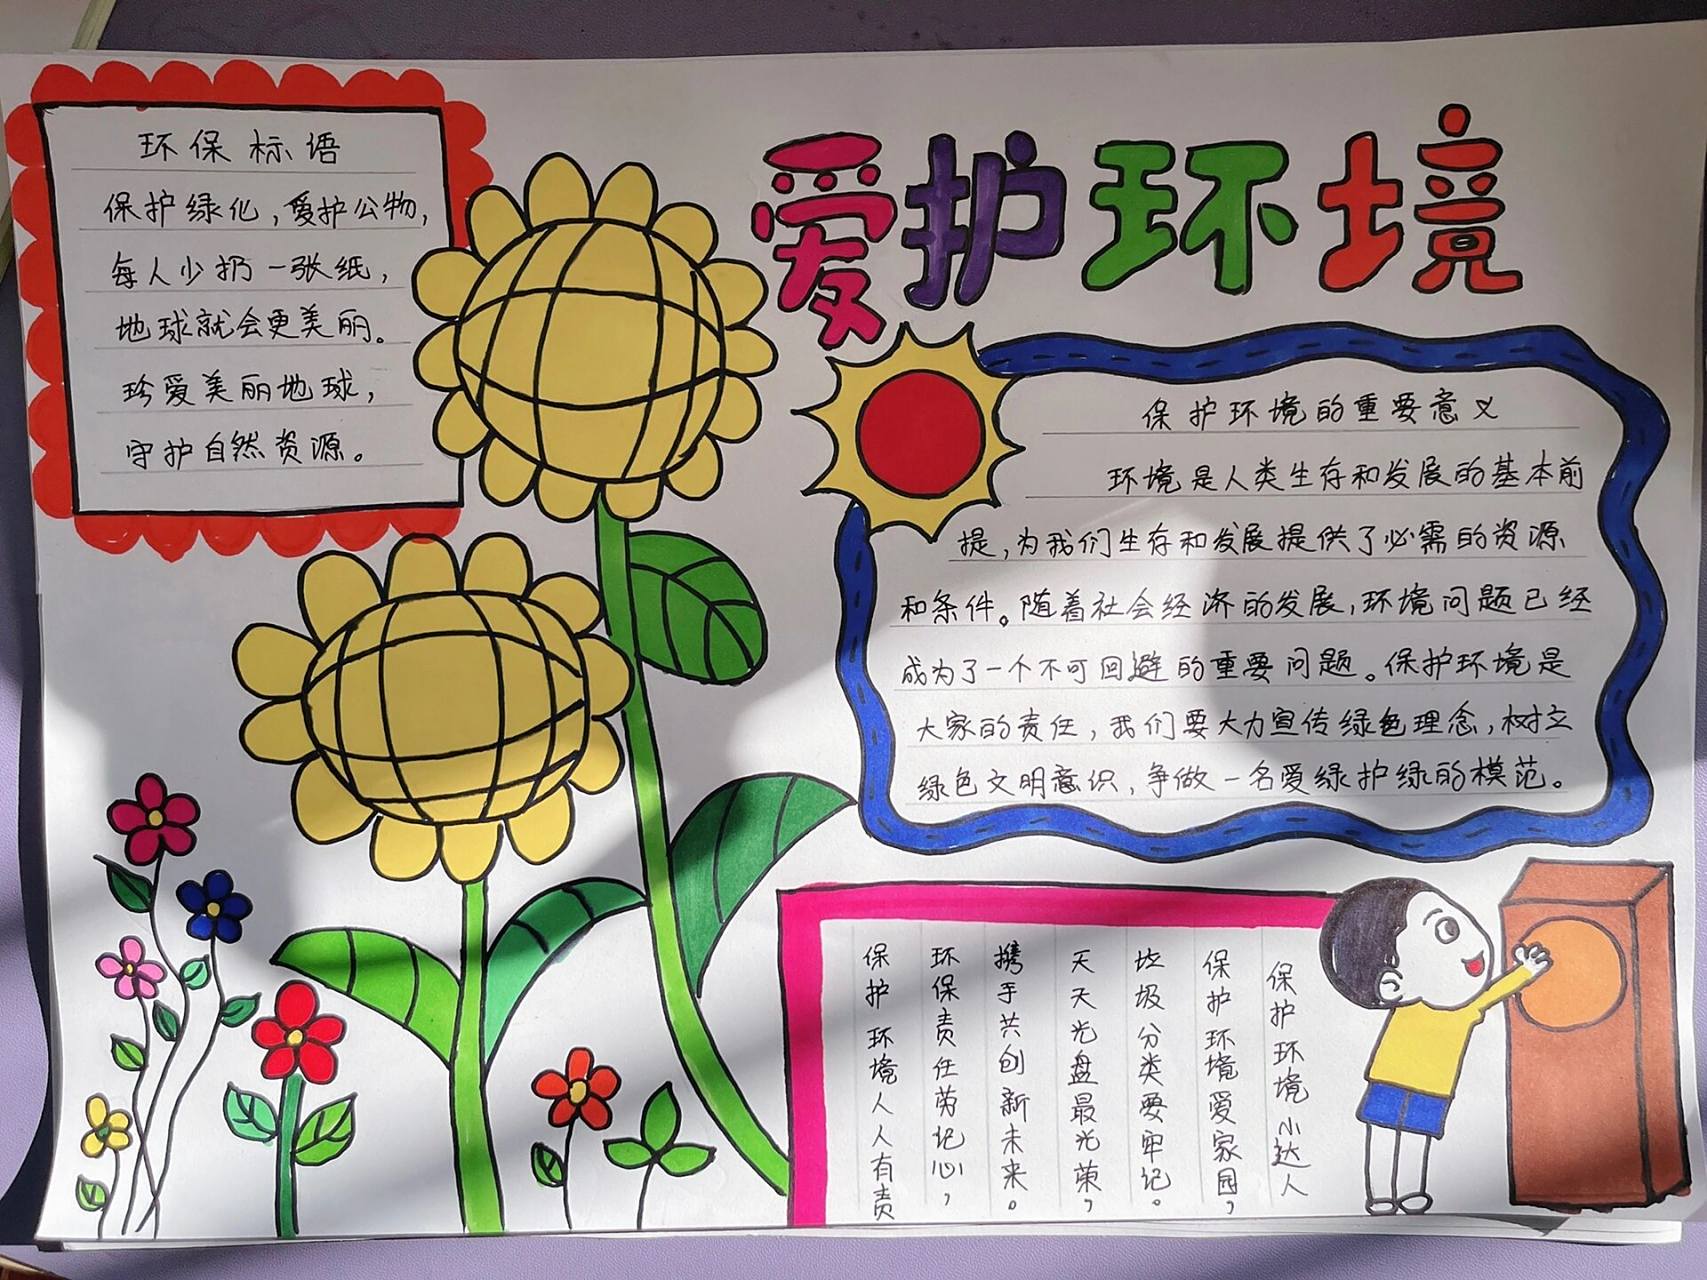 爱护环境
环保标语
保护绿化,爱护公物,
每人少扔一张纸,
地球就会更美丽。
珍爱美丽地球,
守护自然资源。
保护环境的重要意义
环境是人类生存和发展的基本前
提,为我们生存和发展提供了必需的资源
和条件。随着社会经济的发展,环境问题已经
成为了一个不可回避的重要问题。保护环境是
大家的责任,我们要大力宣传绿色理念,树立
绿色文明意识,争做一名爱绿护绿的模范。
保护环境小达人
保护环境爱家园,
垃圾分类要牢记。
天天光盘最光荣,
携手共创新未来。
环保责任劳记心,
保护环境人人有责